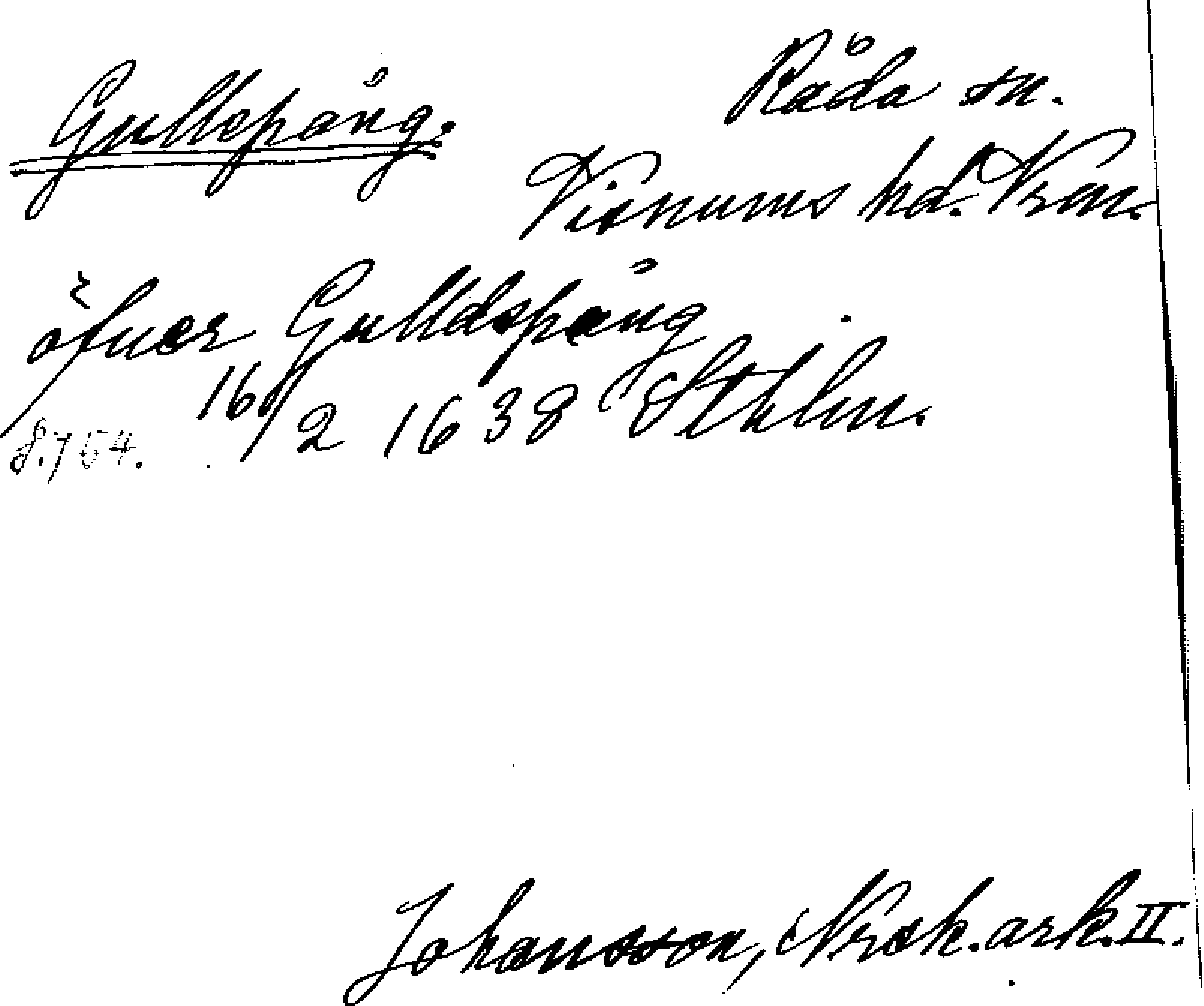 Gullspång.
Råda sn.
Visnums hd. Vrm.
öfuer Gulldspång
16/2 1638 Sthlm.
S. 754.
Johansson, Noraskog. ark. II.